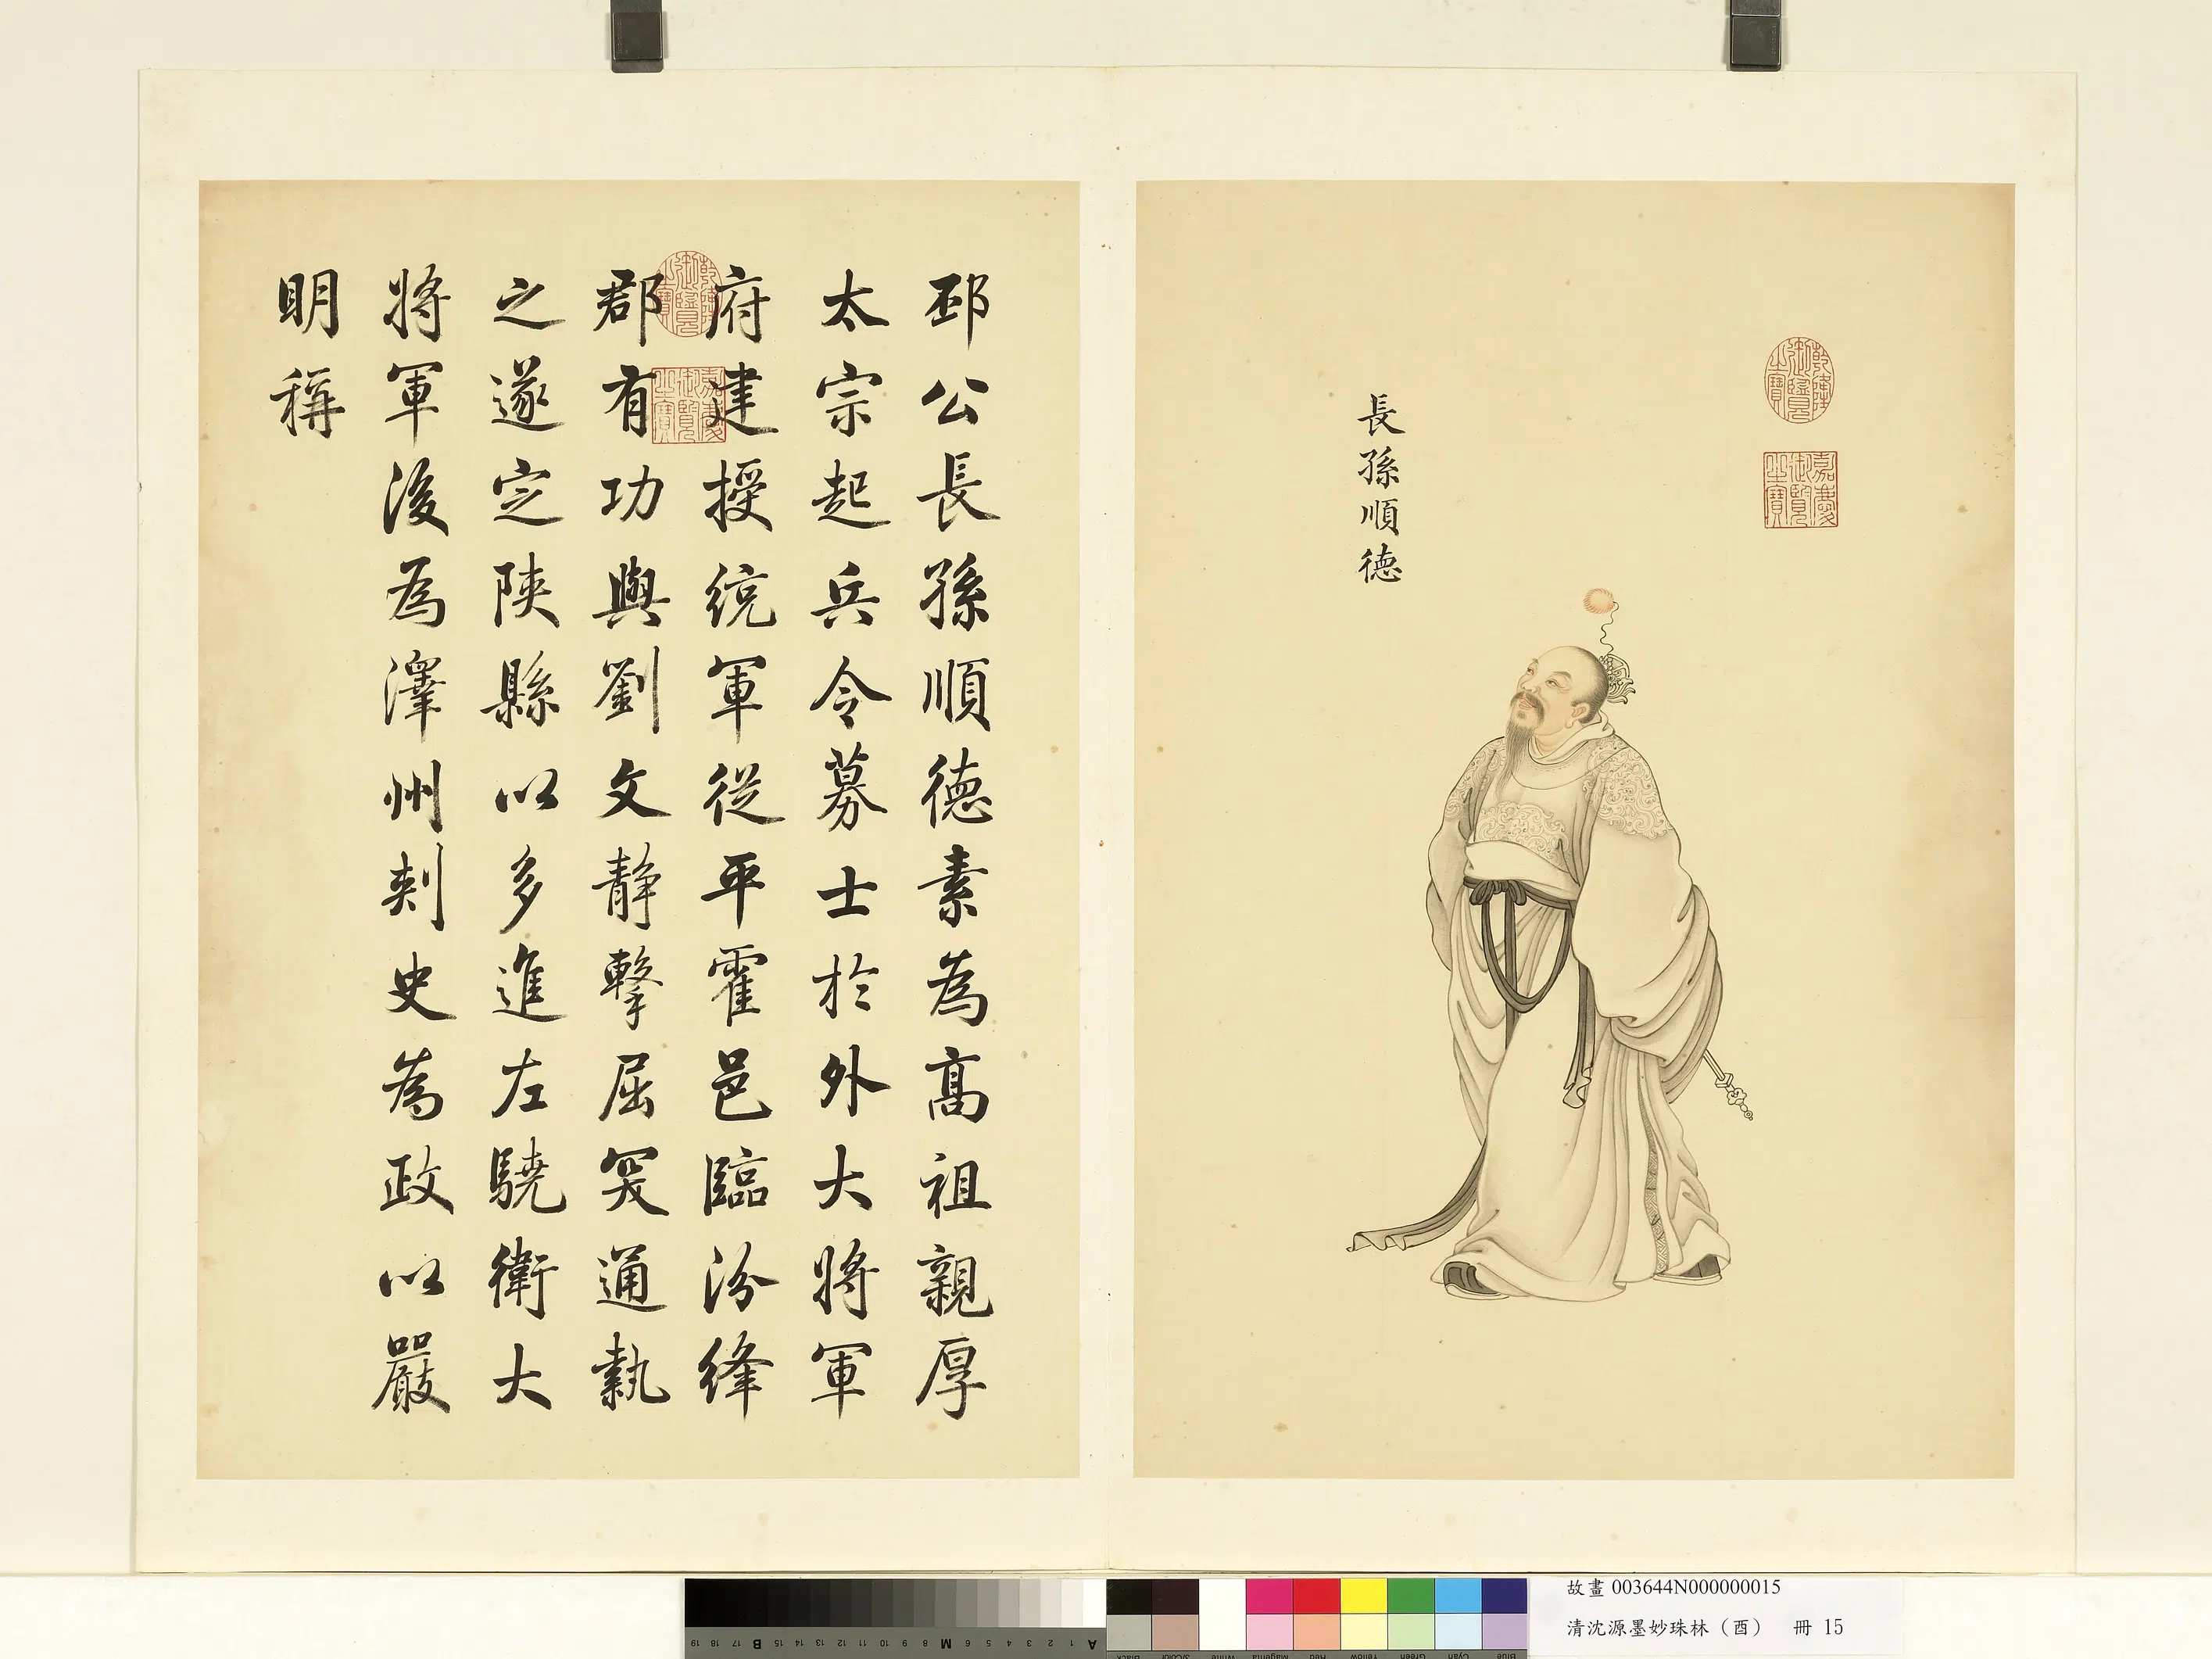 長孫順德
乾隆御覽之寶
嘉慶御覽之寶
邳公長孫順德素為髙祖親厚
太宗起兵令募士於外大將軍
府建授統軍從平霍邑臨汾絳
郡有功與劉文靜擊屈突通執
之遂定陝縣以多進左驍衛大
將軍後為澤州刺史為政以嚴
明稱
乾隆御覽之寶
嘉慶御覽之寶
故畫 003644N000000015
清沈源墨妙珠林（酉） 冊 15
A 1 2 3 4 5 6 M 8 9 10 11 12 13 14 15 B 17 18 19
Blue Cyan Green Yellow Red Magenta White 3/Color Black